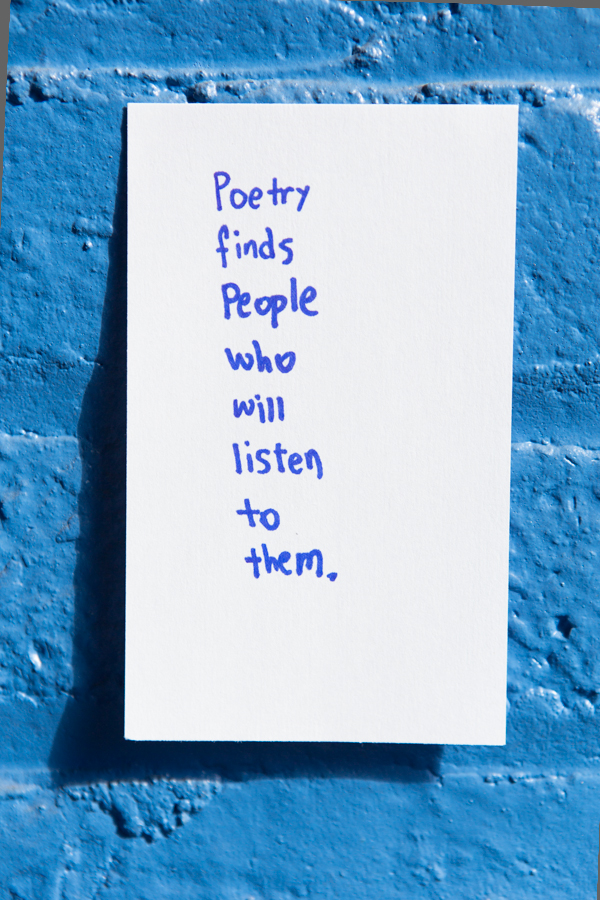 Poetry
finds
People
who
will
listen
to
them.